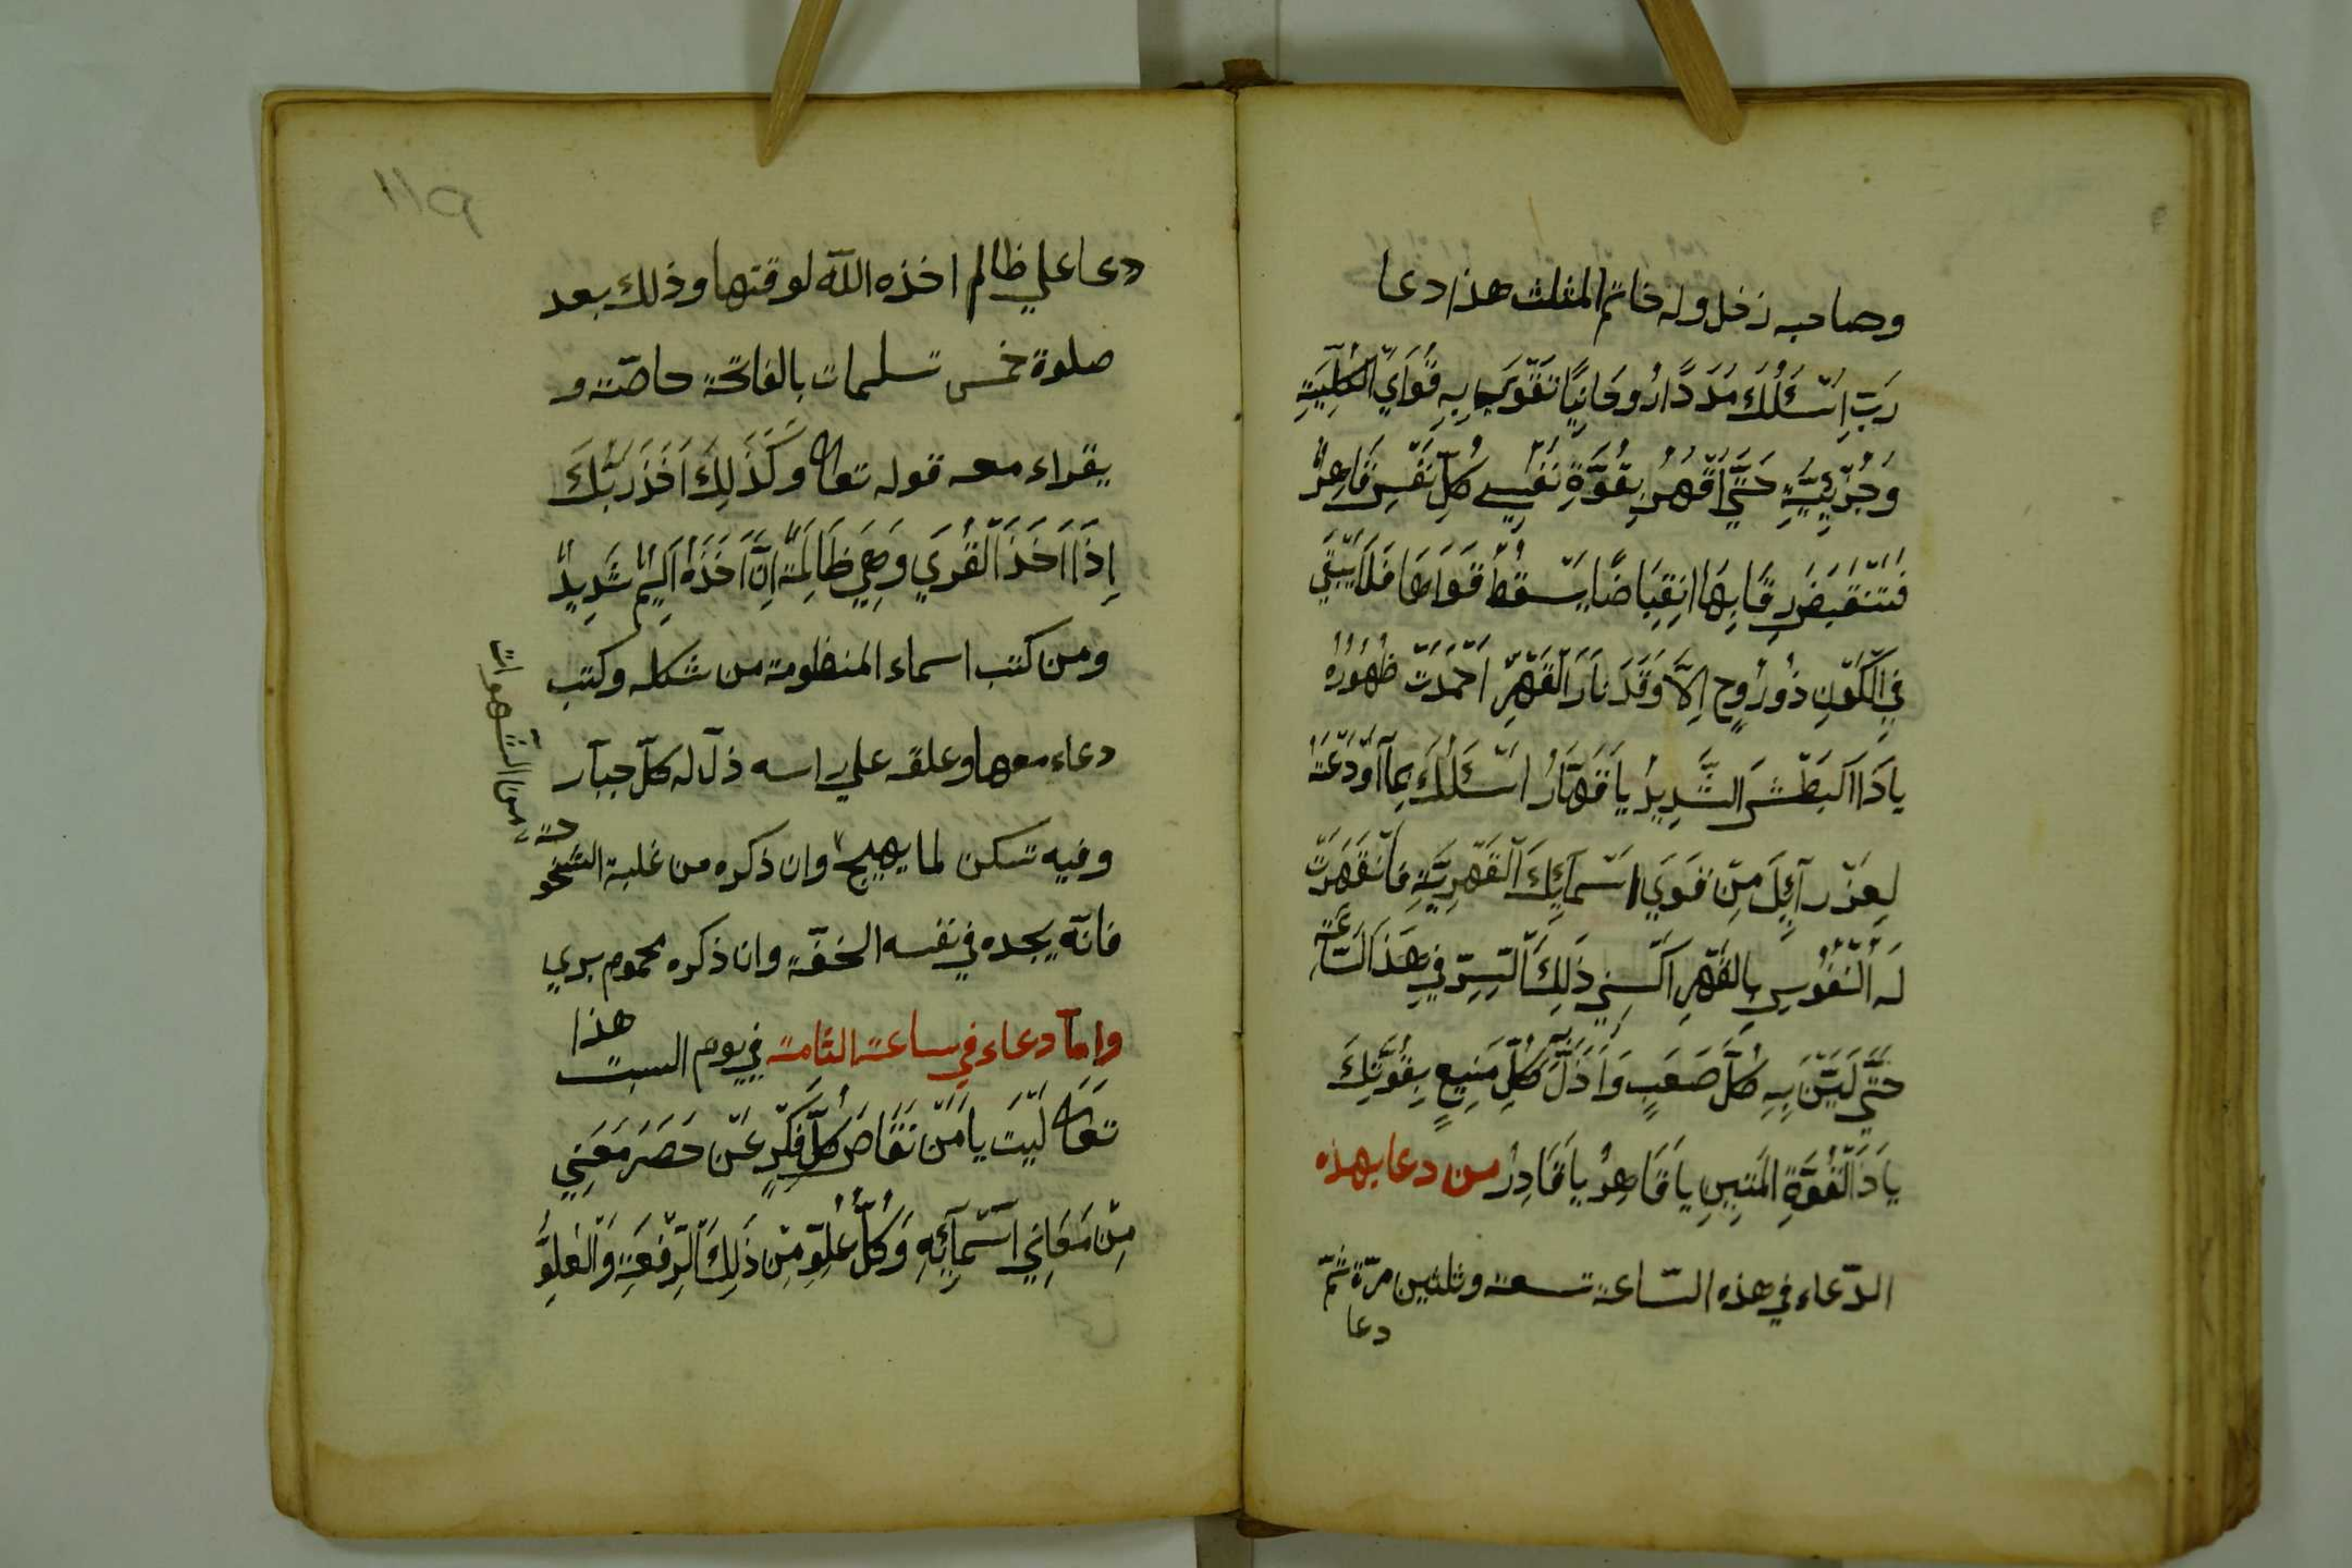 وصاحبه زخل وله خاتم المثلث هذا دعا
رَبِّ اَسْئَلُكَ مَدَدًا رُوحَانِيًّا تَقْوَي بِهِ قُوَايَ الْكُلِّيَةِ
وَجُزْئِيَّةِ حَتَّي اَقْهَرُ بِقُوَّةِ نَفْسِي كُلِّ نَفْسٍ قَاهِرٌ
فَتَنْقَبِضَ رِقَابِهَا اِنْقِبَاضًا يَسْقُطُ قَوَاهَا فَلَا يَبْقَي
فِي الْكَوْنِ ذُو رُوحٍ اِلَّا وَقَدْ نَارَ الْقَهْرِ اَخْمَدَتْ ظُهُورُهُ
يا ذَا الْبَطْشِ الشَّدِيدُ يَا قَهَّارُ اَسْئَلُكَ بِمَا اَوْدَعْتَهُ
لِعِزْرآئِلَ مِنْ قَوَي اَسْمَآئِكَ الْقَهْرِيَّةِ فَانْقَهَرَتْ
لَهُ النُّفُوسِ بِالْقَهْرِ اَكْسِنِي ذَلِكَ السِّرِّ فِي هَذَا السَّاعَةِ
حَتَّي لَيِّنَ بِهِ كُلَّ صَعَبٍ وَاَذَلَّ كُلِّ مَنِيعٍ بِقُوَّتِكَ
يَا ذَا الْقُوَّةِ الْمَتِينِ يَا قَاهِرُ يَا قَادِرُ من دعا بهذه
الدّعاء في هذه السّاعة تسعة وثلثين مرّة ثمّ
دعا
١١٩
دعا علي ظالم اخذه اللّه لوقتها وذلك بعد
صلوة خمس تسليمات بالفاتحة خاصّة و
يقراء معه قوله تعالى وَكَذَلِكَ اَخْذُ رَبُّكَ
اِذَا اَخَذَ الْقُرَي وَهِيَ ظَالِمَةٌ اِنَّ اَخْذَهُ اَلِيمٌ شَدِيدٌ
ومن كتب اسماء المنظومة من شكله وكتب
دعاء معها وعلقه علي راسه ذلّ له كلّ جبآر
وفيه تسكن لما يهيج وان ذكره من غلبة الشّخو
خة من الشهوات
فانّه يجده في نفسه الخفّة وان ذكره محموم بري
وامّا دعاء في ساعة الثامنة في يوم السبت هذا
تعالى لَيْتَ يا مَنْ تَقَاصَرُ كُلَّ فِكْرٍ عَنْ حَصَرَ مَعَنِي
مِنْ مَعَانِي اَسْمَآئِهِ وَكُلُّ عُلُوٍّ مِنْ ذَلِكَ الرِّفْعَةِ وَالْعُلُوِّ